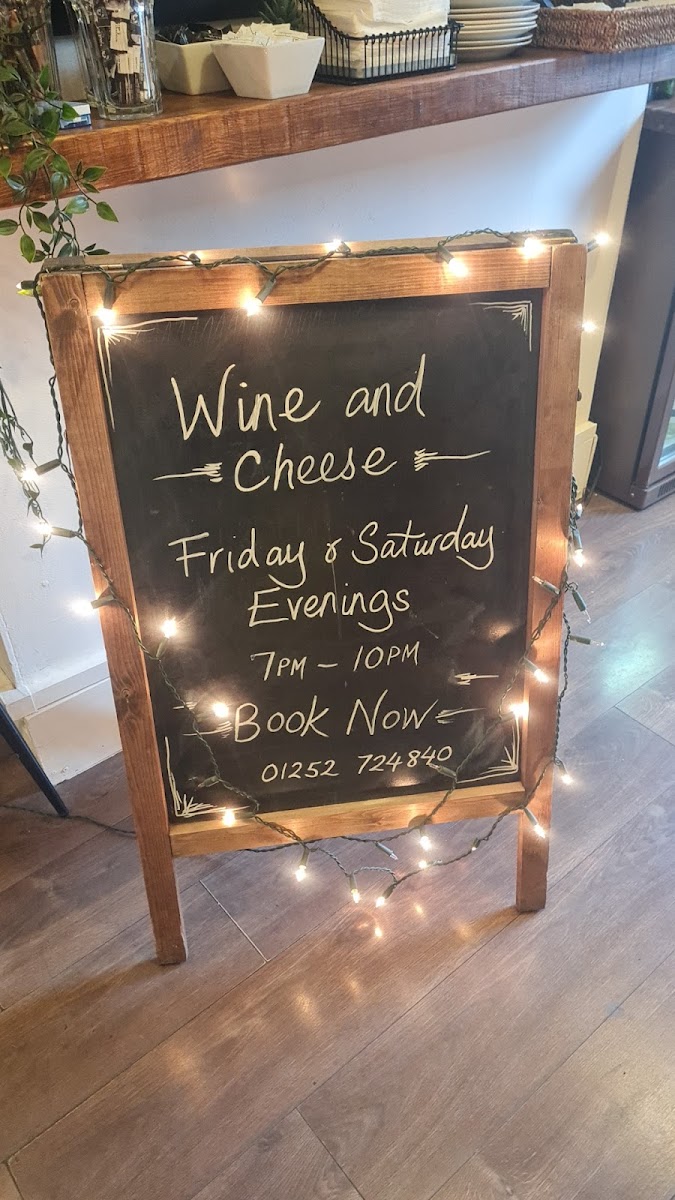 Wine and
Cheese
Friday & Saturday
Evenings
7PM - 10PM
Book Now
01252 724840